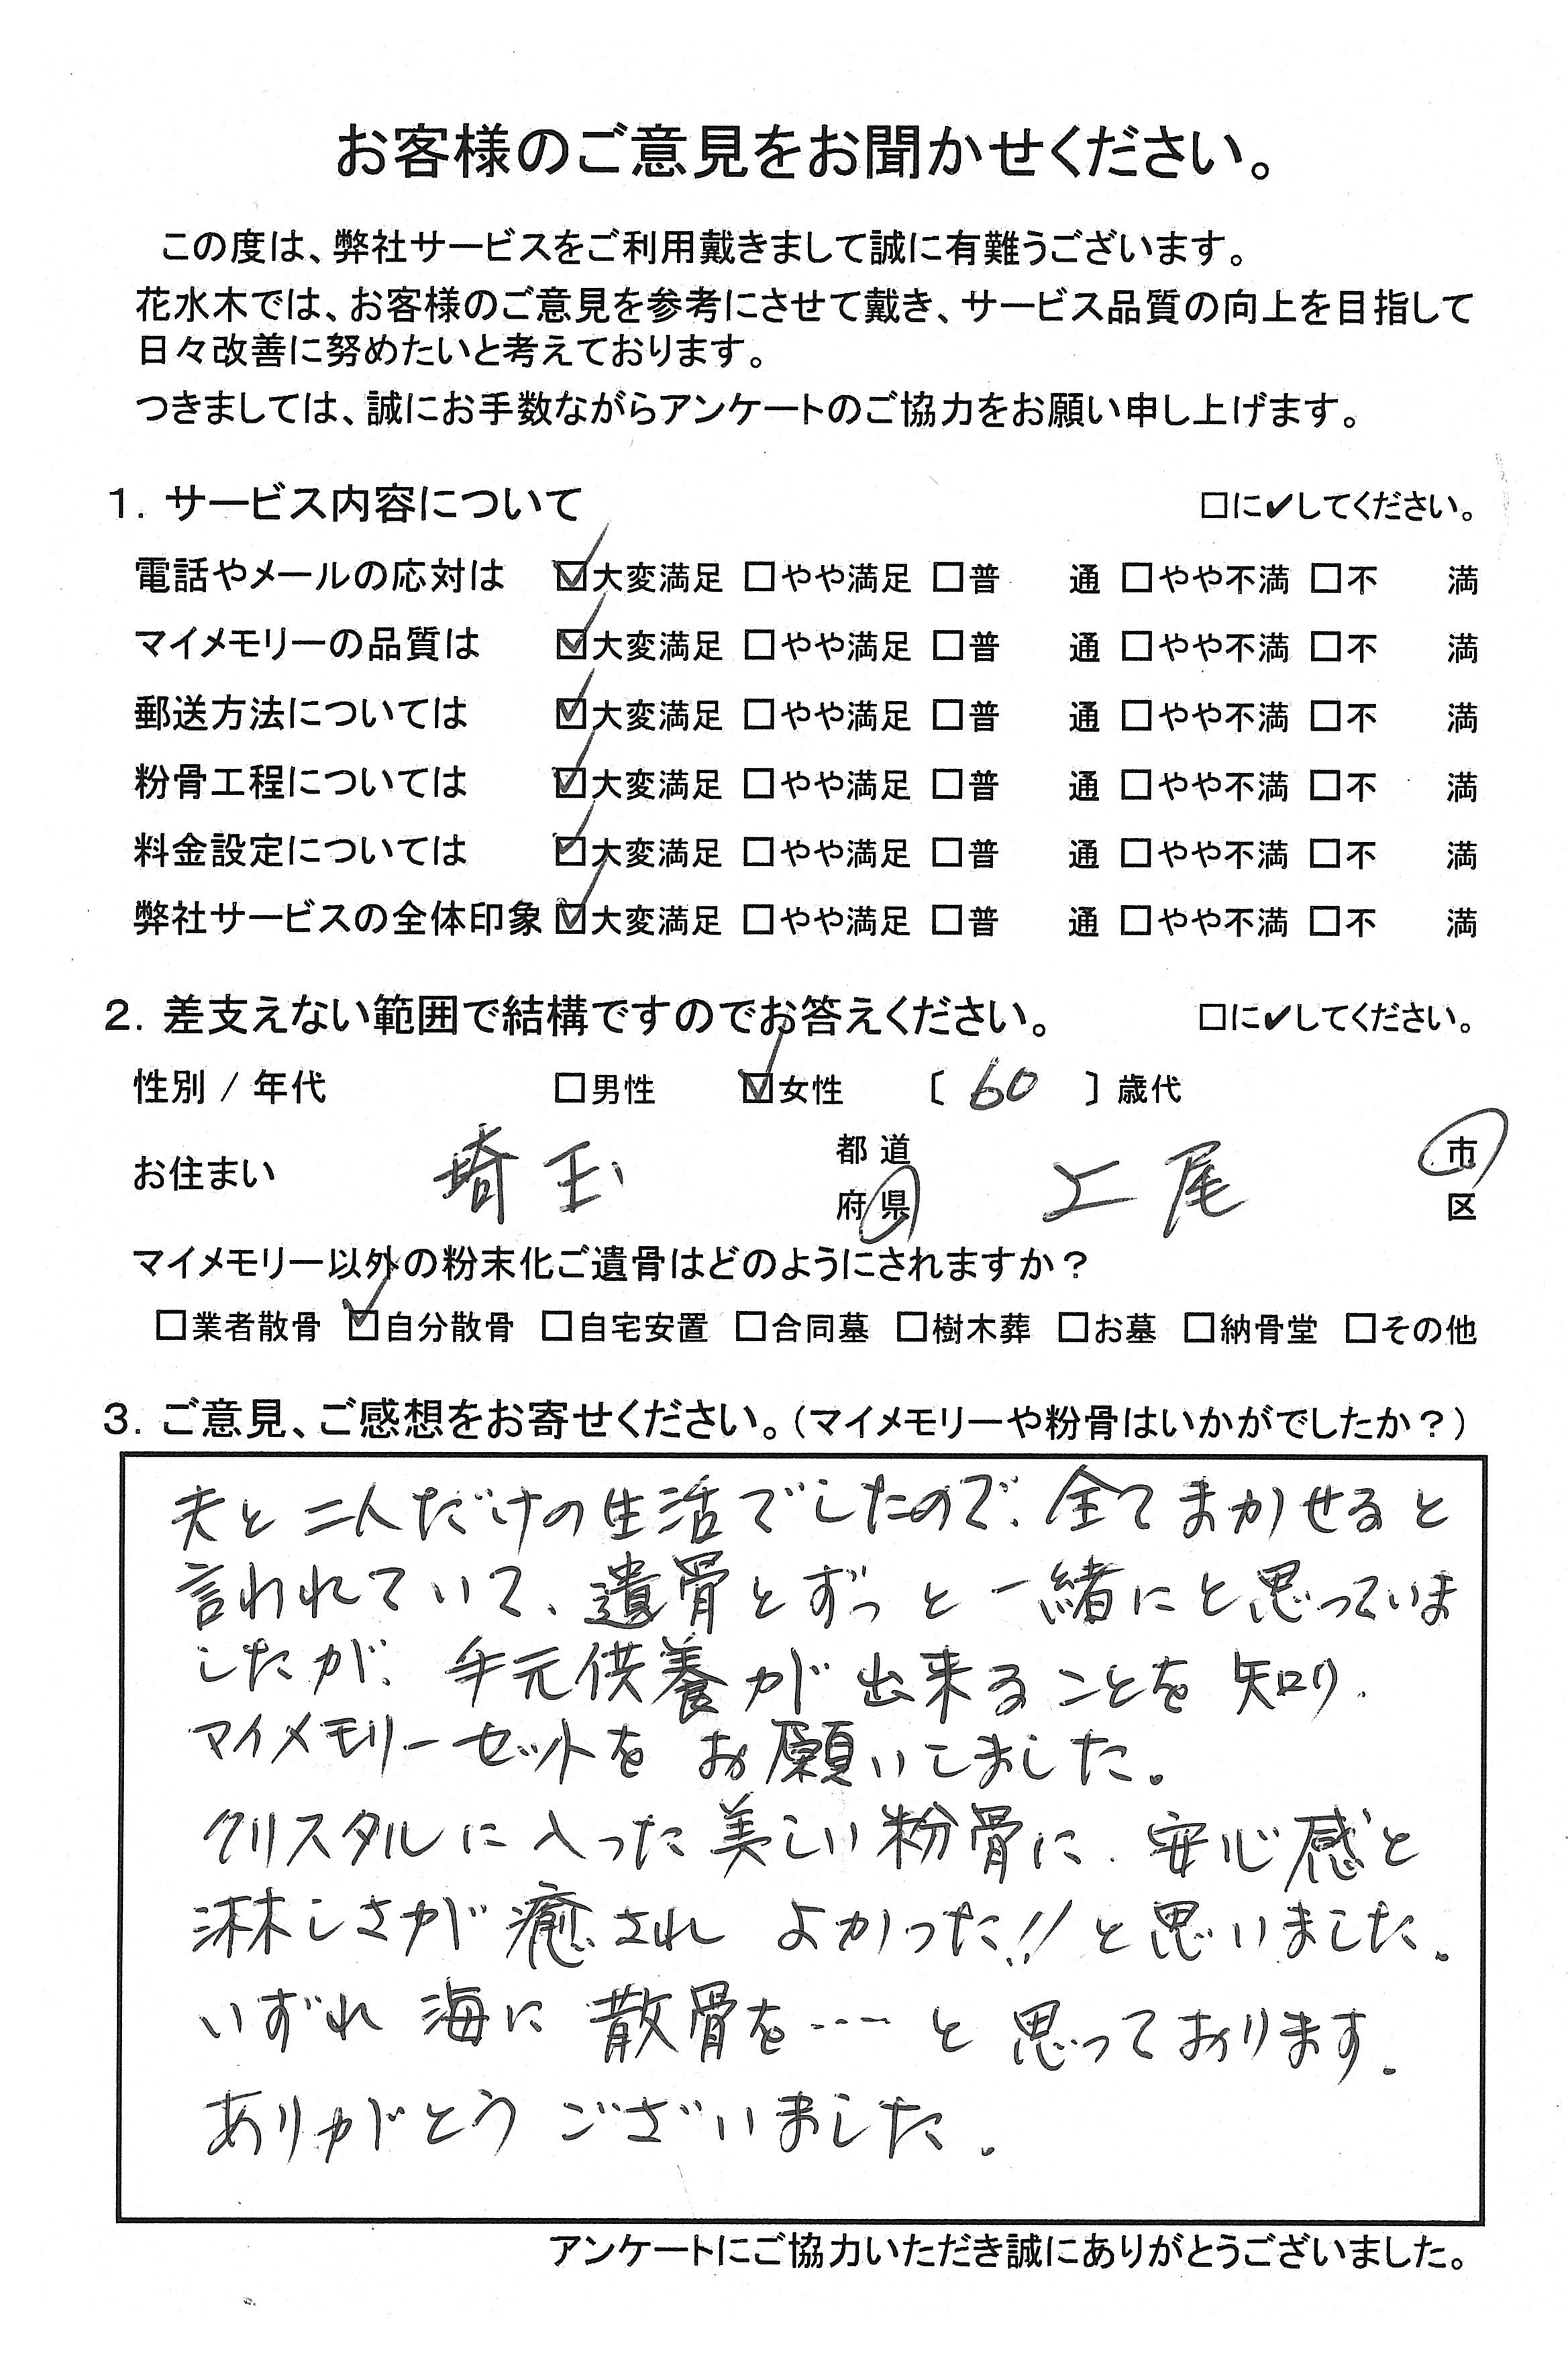 お客様のご意見をお聞かせください。
この度は、弊社サービスをご利用戴きまして誠に有難うございます。
花水木では、お客様のご意見を参考にさせて戴き、サービス品質の向上を目指して
日々改善に努めたいと考えております。
つきましては、誠にお手数ながらアンケートのご協力をお願い申し上げます。
1. サービス内容について □に✔してください。
電話やメールの応対は ☑大変満足 □やや満足 □普 通 □やや不満 □不 満
マイメモリーの品質は ☑大変満足 □やや満足 □普 通 □やや不満 □不 満
郵送方法については ☑大変満足 □やや満足 □普 通 □やや不満 □不 満
粉骨工程については ☑大変満足 □やや満足 □普 通 □やや不満 □不 満
料金設定については ☑大変満足 □やや満足 □普 通 □やや不満 □不 満
弊社サービスの全体印象 ☑大変満足 □やや満足 □普 通 □やや不満 □不 満
2. 差支えない範囲で結構ですのでお答えください。 □に✔してください。
性別 / 年代 □男性 ☑女性 〔 60 〕歳代
お住まい 埼玉 都道府県 上尾 市区
マイメモリー以外の粉末化ご遺骨はどのようにされますか？
□業者散骨 ☑自分散骨 □自宅安置 □合同墓 □樹木葬 □お墓 □納骨堂 □その他
3. ご意見、ご感想をお寄せください。（マイメモリーや粉骨はいかがでしたか？）
夫と二人だけの生活でしたので、全てまかせると
言われていて、遺骨とずっと一緒にと思っていま
したが、手元供養が出来ることを知り、
マイメモリーセットをお願いしました。
クリスタルに入った美しい粉骨に、安心感と
淋しさが癒され よかった!!と思いました。
いずれ 海に 散骨を…と思っております。
ありがとう ございました。
アンケートにご協力いただき誠にありがとうございました。